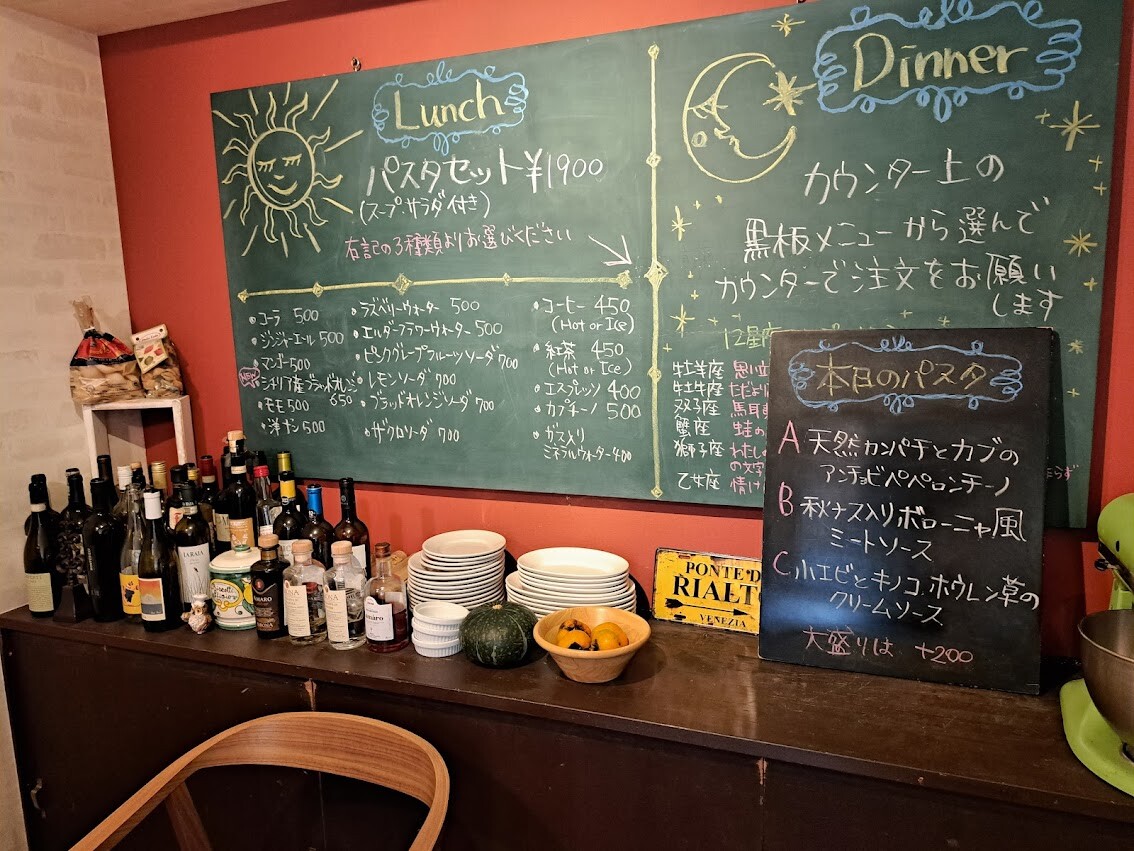 Lunch
パスタセット¥1900
(スープ・サラダ付き)
右記の3種類よりお選びください
・コーラ 500
・ジンジャーエール 500
・マンゴー 500
NEW
・シチリア産ブラッドオレンジ
650
・モモ 500
・洋ナシ 500
・ラズベリーウォーター 500
・エルダーフラワーウォーター 500
・ピンクグレープフルーツソーダ 700
・レモンソーダ 700
・ブラッドオレンジソーダ 700
・ザクロソーダ 700
・コーヒー 450
(Hot or Ice)
・紅茶 450
(Hot or Ice)
・エスプレッソ 400
・カプチーノ 500
・ガス入り
ミネラルウォーター 400
Dinner
カウンター上の
黒板メニューから選んで
カウンターで注文をお願い
します
12星座
牡羊座
牡牛座
双子座
蟹座
獅子座
乙女座
本日のパスタ
A 天然カンパチとカブの
アンチョビペペロンチーノ
B 秋ナス入りボローニャ風
ミートソース
C 小エビとキノコ、ホウレン草の
クリームソース
大盛りは +200
PONTE D
RIALT
VENEZIA
LA RAIA
AMARO
Amaro